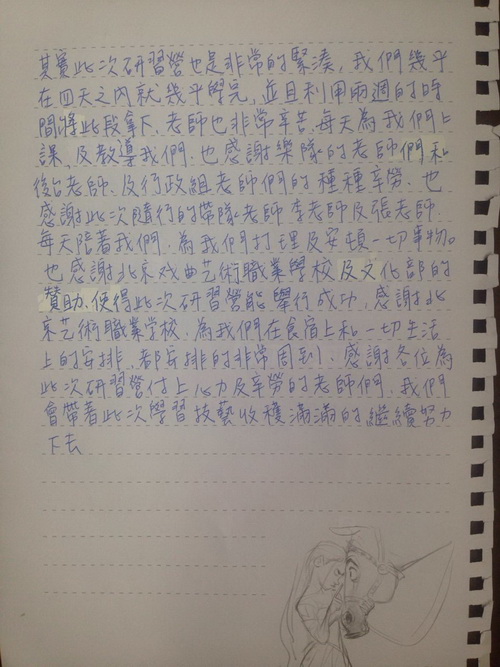 其實此次研習營也是非常的緊湊，我們幾乎
在四天之內就幾乎學完，並且利用兩週的時
間將此段拿下，老師也非常辛苦，每天為我們上
課，及教導我們，也感謝樂隊的老師們和
後台老師，及行政組老師們的種種辛勞，也
感謝此次隨行的帶隊老師李老師及張老師，
每天陪著我們，為我們打理及安頓一切事物。
也感謝北京戏曲艺術職業學校及文化部的
贊助，使得此次研習營能舉行成功，感謝北
京艺術職業学校，為我們在食宿上和一切生活
上的安排，都安排的非常周到，感謝各位為
此次研習營付上心力及辛勞的老師們，我們
會帶著此次學習技藝收穫滿滿的繼續努力
下去